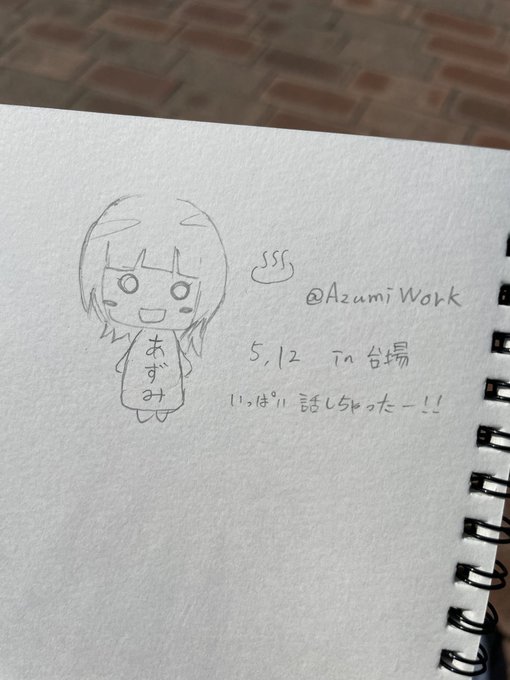 あずみ
@AzumiWork
5,12 in 台場
いっぱい 話しちゃったー!!